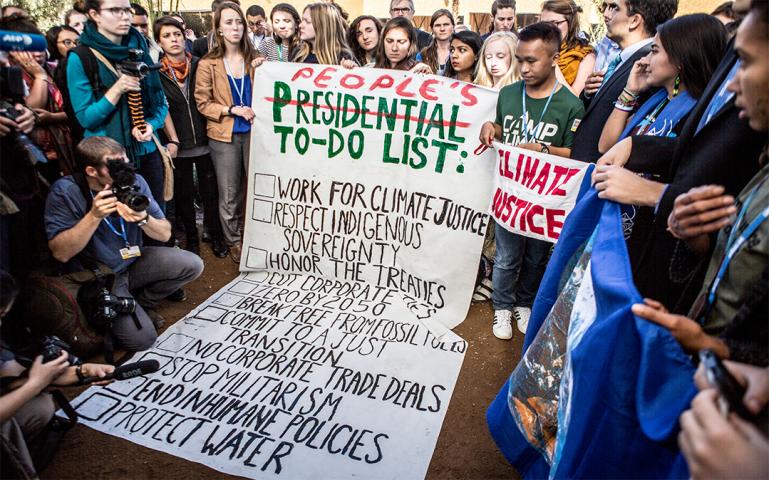 PEOPLE'S
PRESIDENTIAL
TO-DO LIST:
WORK FOR CLIMATE JUSTICE
RESPECT INDIGENOUS
SOVEREIGNTY
HONOR THE TREATIES
CUT CORPORATE TIES
ZERO BY 2050
BREAK FREE FROM FOSSIL FUELS
COMMIT TO A JUST
TRANSITION
NO CORPORATE TRADE DEALS
STOP MILITARISM
END INHUMANE POLICIES
PROTECT WATER
CLIMATE
JUSTICE
CAMP
AFP